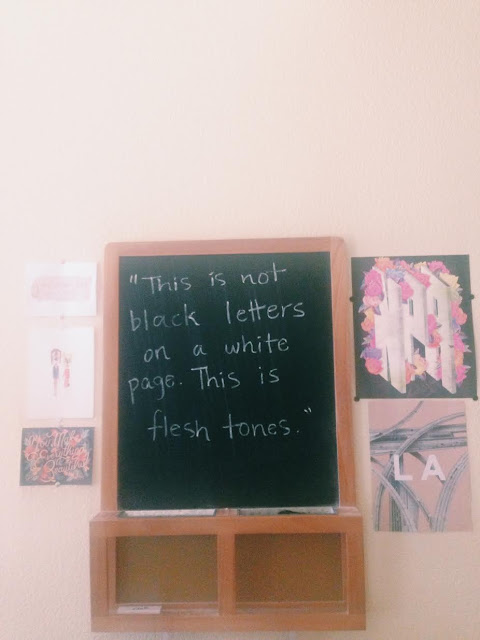 "This is not
black letters
on a white
page. This is
flesh tones."
LA